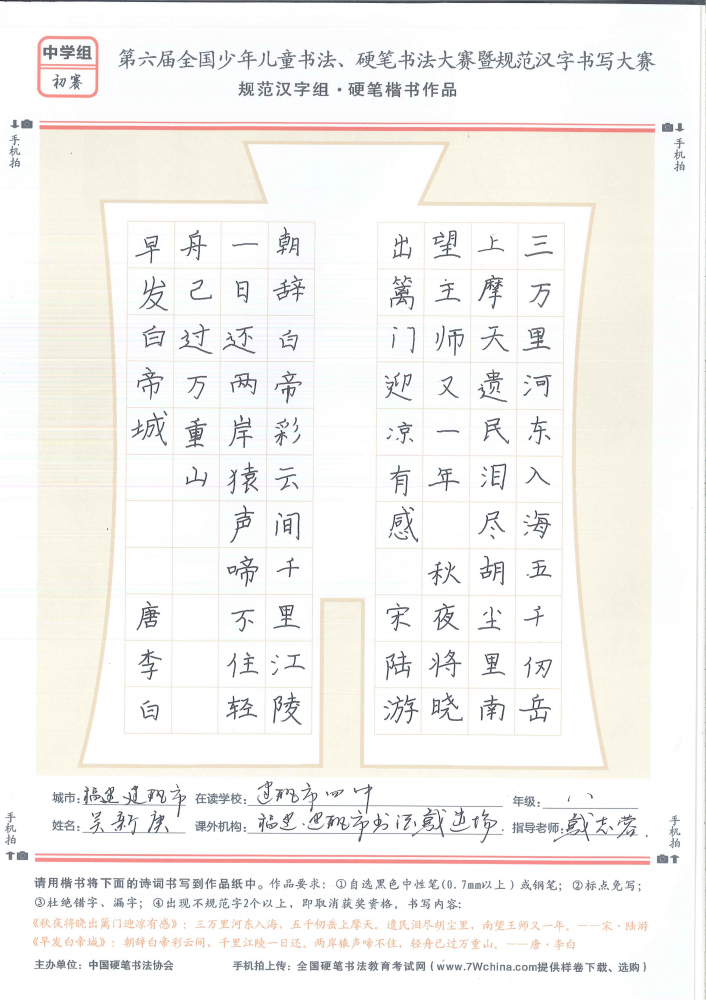 中学组
初赛
第六届全国少年儿童书法、硬笔书法大赛暨规范汉字书写大赛
规范汉字组·硬笔楷书作品
手机拍
手机拍
三万里河东入海五千仞岳
上摩天遗民泪尽胡尘里南
望主师又一年秋夜将晓
出篱门迎凉有感宋陆游
朝辞白帝彩云间千里江陵
一日还两岸猿声啼不住轻
舟己过万重山
早发白帝城唐李白
城市：福建建瓯市 在读学校：建瓯市四中 年级：八
姓名：吴新庚 课外机构：福建.建瓯市书法 指导老师：戴志蓉.
手机拍
手机拍
请用楷书将下面的诗词书写到作品纸中。作品要求：①自选黑色中性笔(0.7mm以上)或钢笔；②标点免写；
③杜绝错字、漏字；④出现不规范字2个以上，即取消获奖资格。书写内容：
《秋夜将晓出篱门迎凉有感》：三万里河东入海，五千仞岳上摩天。遗民泪尽胡尘里，南望王师又一年。——宋·陆游
《早发白帝城》：朝辞白帝彩云间，千里江陵一日还。两岸猿声啼不住，轻舟已过万重山。——唐·李白
主办单位：中国硬笔书法协会 手机拍上传：全国硬笔书法教育考试网（www.7Wchina.com提供样卷下载、选购）